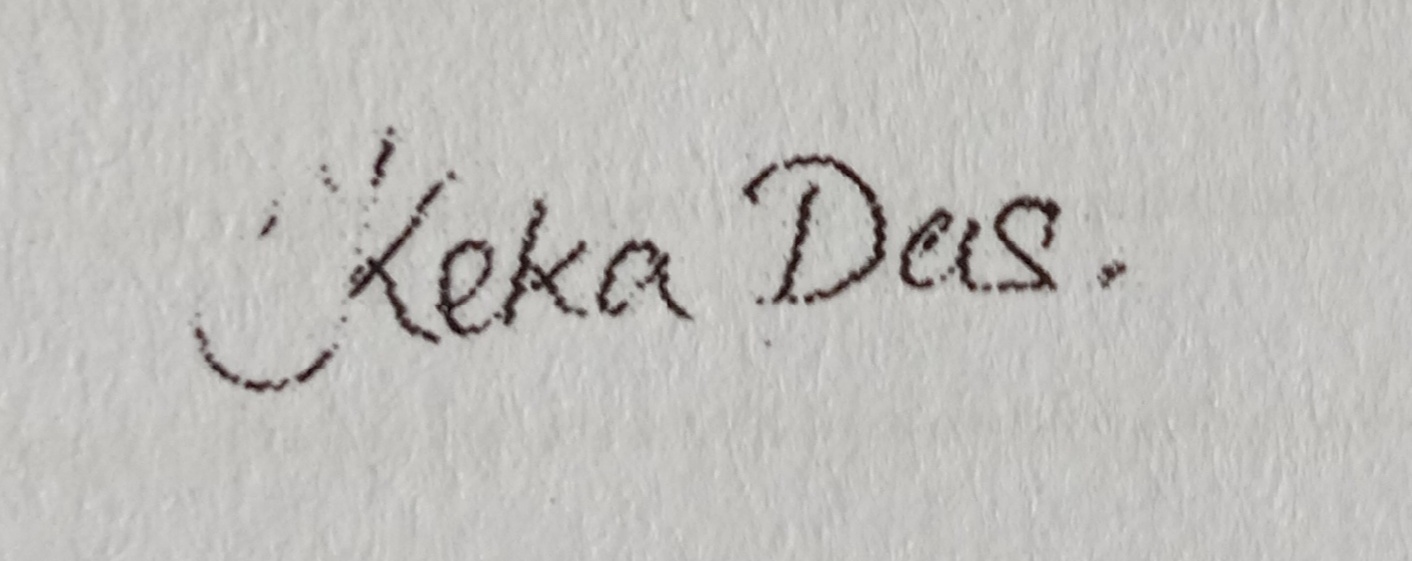 Keka Das.